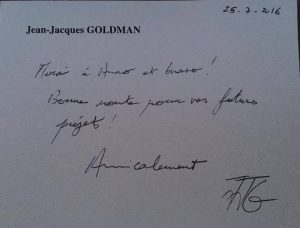 25-7-2016
Jean-Jacques GOLDMAN
Merci à et bravo !
Bonne route pour vos futurs
projets !
Amicalement
JJG